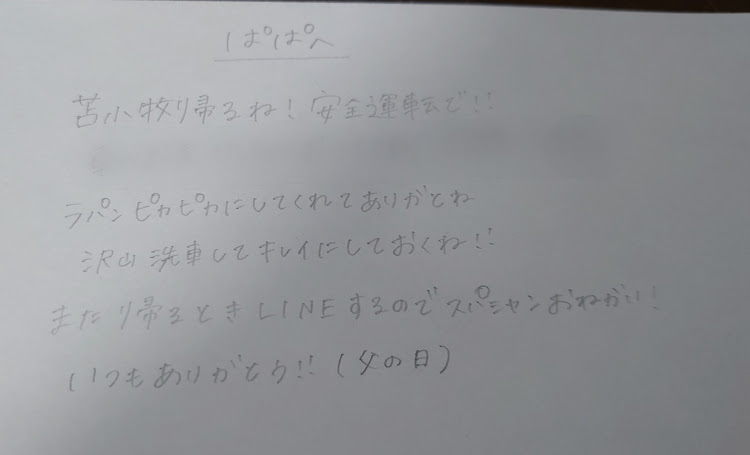 ぱぱへ
苫小牧り帰るね!安全運転で!!
ラパンピカピカにしてくれてありがとね
沢山洗車してキレイにしておくね!!
またり帰るときLINEするのでスパシャンおねがい!
いつもありがとう!!(父の日)